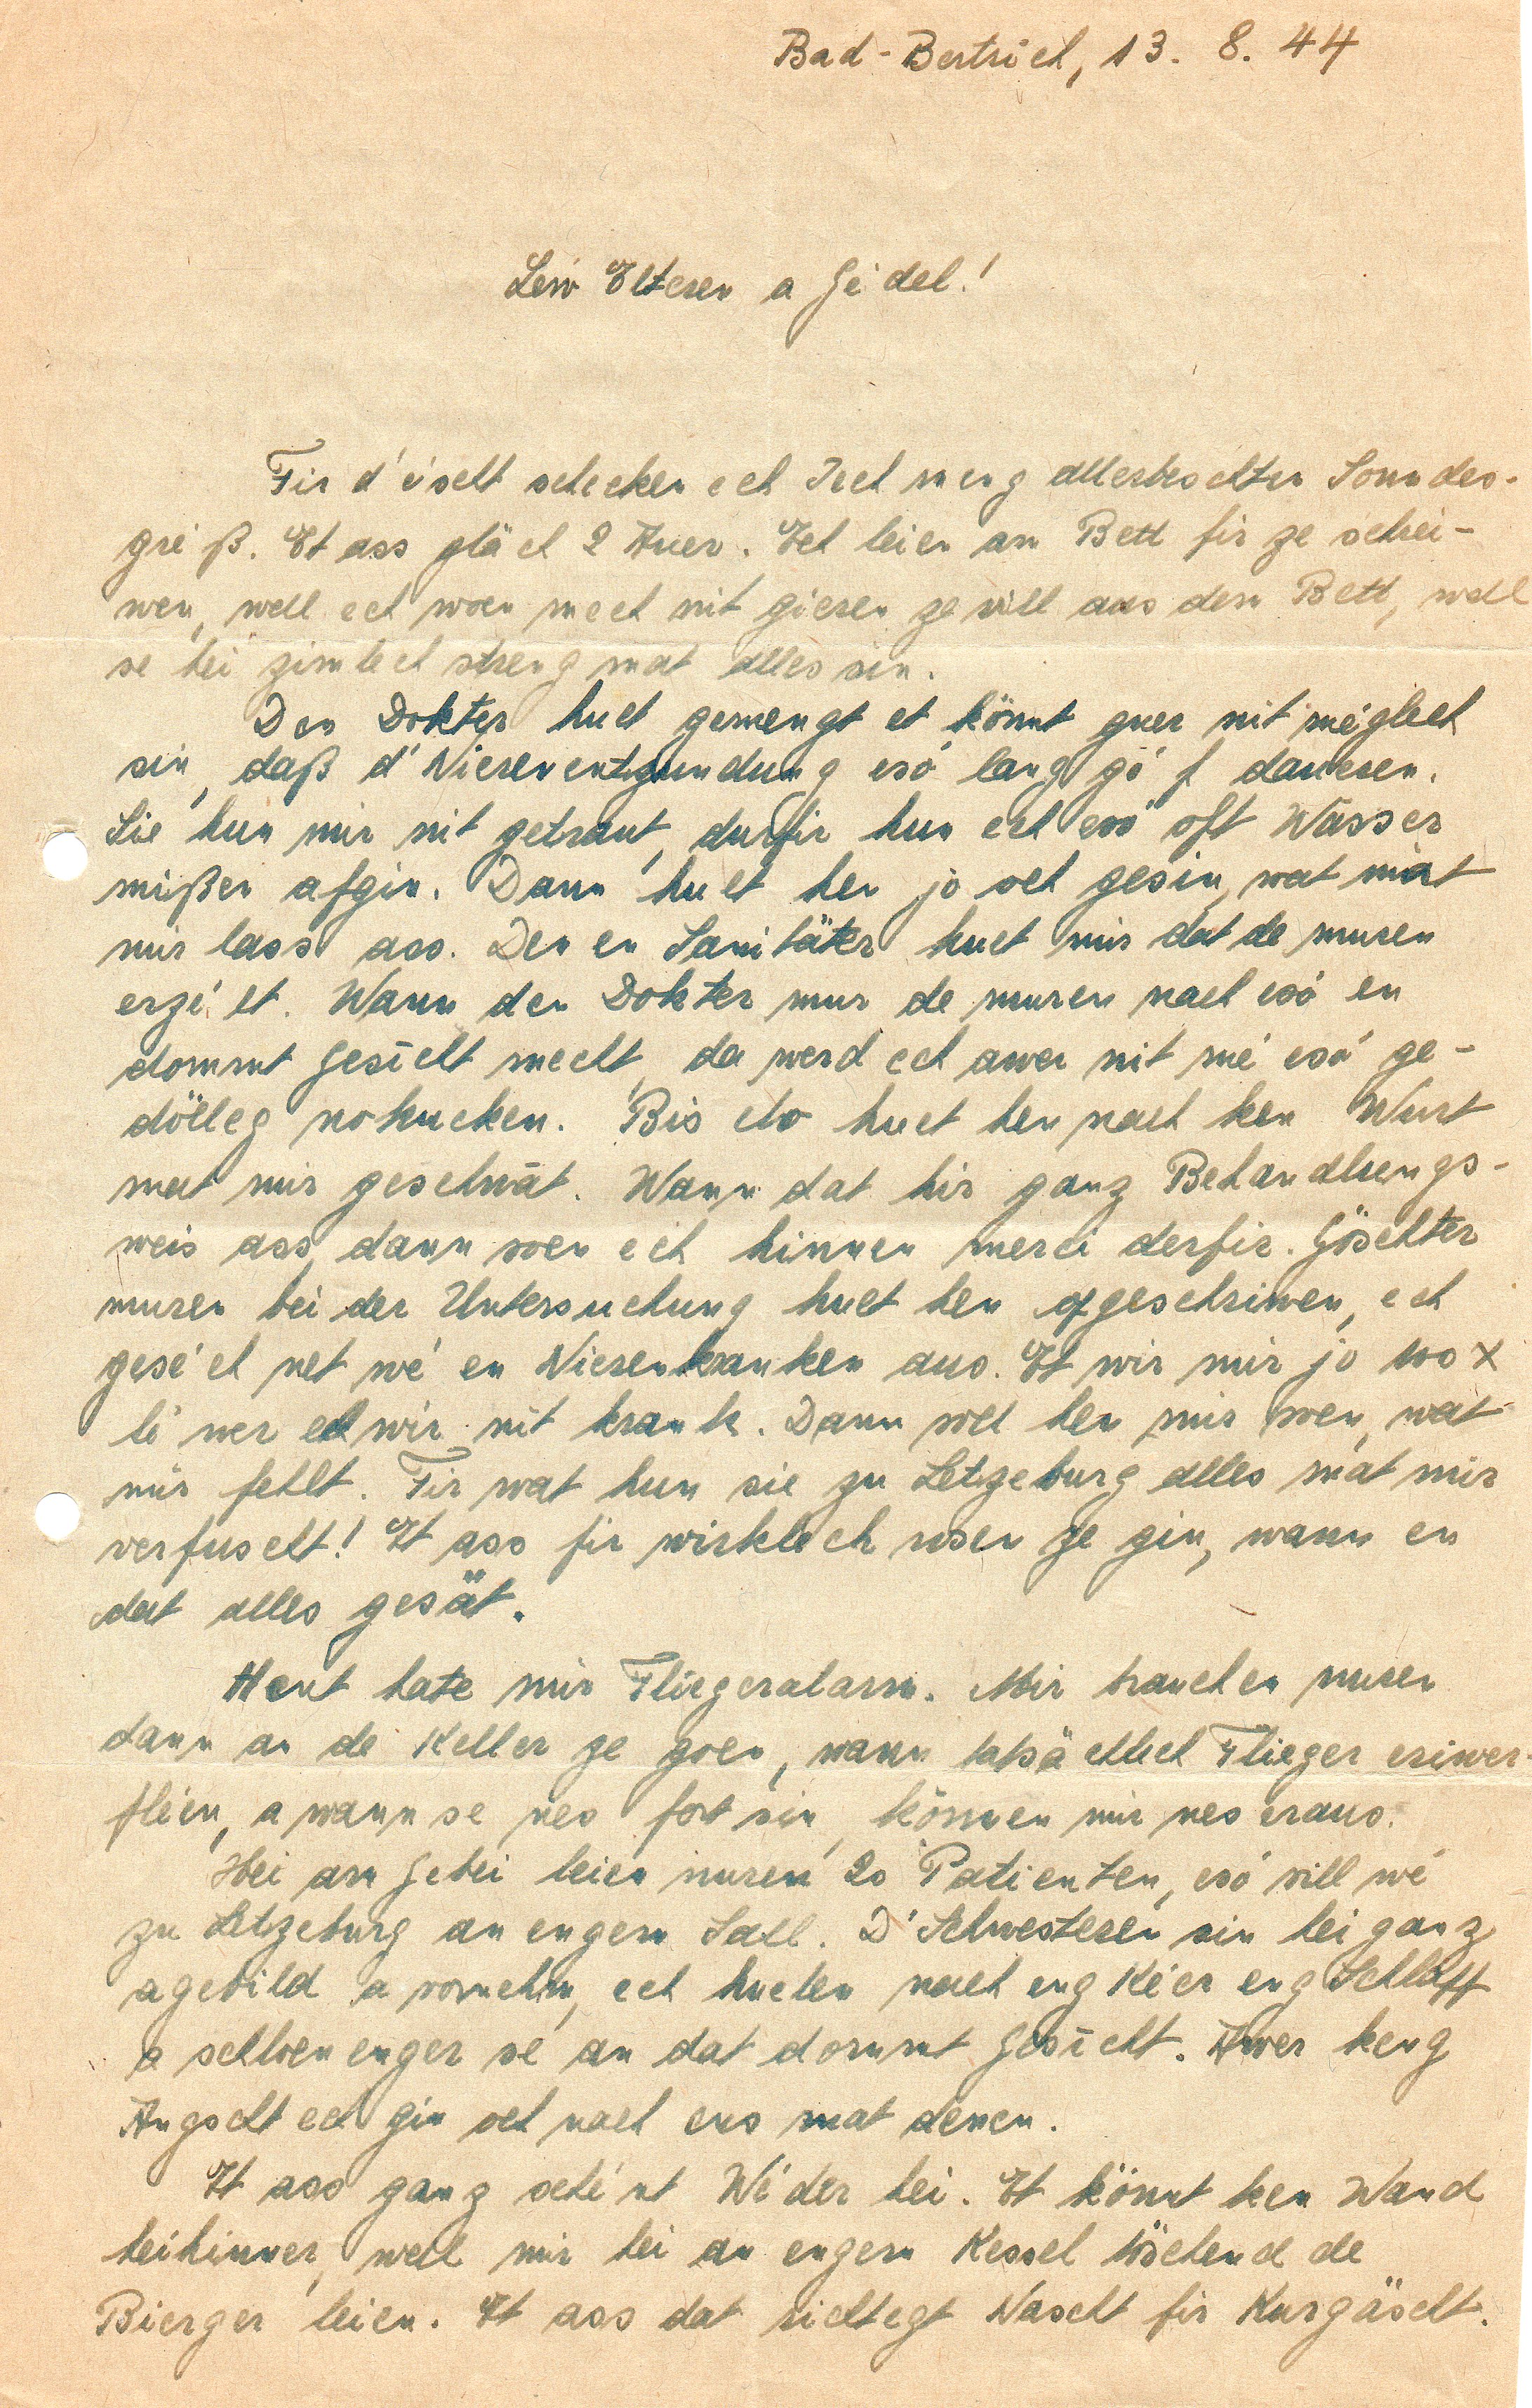 Bad-Bertrich, 13. 8. 44
Léiw Elteren a Gédel!
Fir d'éischt schecken ech Iech meng allerbeschten Sonndes-
gréiß. Et ass gläch 2 Auer. Ech leien am Bett fir ze schrei-
wen, well ech woen mech nit gieren ze vill aus dem Bett, well
se hei zimlech streng mat alles sin.
Den Dokter huet gemengt et könnt guer nit méglech
sin, daß d'Nierenentzündung esó lang gó f daueren.
Sie hun mir nit getraut, durfir hun ech esó oft Wasser
müßen afgin. Dann huet hen jo och gesin, wat mat
mir lass ass. Den en Sanitäter huet mir dat de muren
erziélt. Wann den Dokter mur de muren nach esó en
dommt Gesiicht mecht, da werd ech awer nit mé esó ge-
dölleg nokucken. Bis elo huet hen nach ken Wurt
mat mir geschwat. Wann dat hir ganz Behandlungs-
weis ass, dann soen ech hinnen merci derfir. Göschter
muren bei der Untersuchung huet hen opgeschriwen, ech
geséich net wé en Nierenkranken aus. Et wir mir jo 100 x
léiwer ech wir nit krank. Dann soll hen mir soen, wat
mir fehlt. Fir wat hun sie zu Letzeburg alles mat mir
verfuscht! Et ass fir wirklech rosen ze gin, wann en
dat alles gesät.
Heut hate mir Fliegeralarm. Mir brauchen nuren
dann an de Keller ze goen, wann tatsächlech Flieger eriwer-
fléien, a wann se nes fort sin, können mir nes eraus.
Hei am Gebei leien nuren 20 Patienten, esó vill wé
zu Letzeburg an engem Sall. D'Schwesteren sin hei ganz
agebild a vornehm, ech huelen nach eng Kéer eng Schlapp
a schloen enger se an dat dommt Gesiicht. Awer keng
Angscht ech gin och nach ens mat denen.
Et ass ganz schént Wéder hei. Et könnt ken Wand
heihinner, well mir hei an engem Kessel töschend de
Bierger leien. Et ass dat richtegt Nascht fir Kurgäscht.